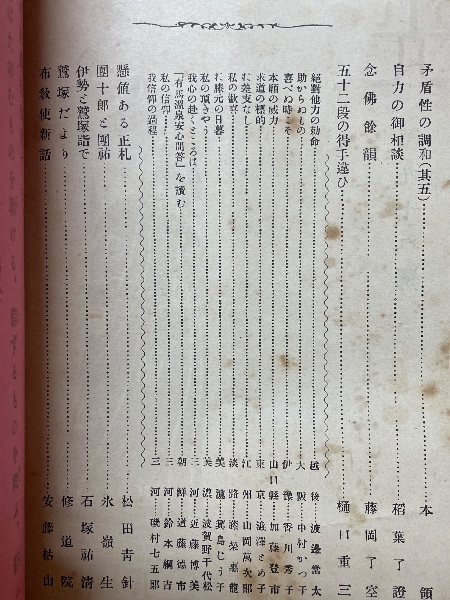 矛盾性の調和(其五)……本領
自力の御相談……稻葉了證
念佛餘韻……藤岡了空
五十二段の得手違ひ……樋口重三
絕對他力の勅命……越後 渡邊常太
助からぬもの……大阪 中村かつ子
喜べぬ時こそ……伊豫 香川秀子
本願の威力……山口縣 加藤登市
求道の標的……東京 澁澤とめ子
に差支なし……江州 山岡萬次郎
私の歡喜……淡路 藤榮惠龍
に膝元の日暮……美濃 箕島じう子
私の頂きやう……美濃 波賀野千代松
我心の赴くところは……三河 近藤博美
「有馬溫泉安心問答」を讀む……朝鮮 道藤德市
私の信仰……三河 鈴木綱吉
我信仰の過程……三河 磯村七五郎
懸値ある正札……松田青針
團十郎と團祐……氷嶺生
伊勢と鷲塚詣で……石塚祐淸
鷲塚だより……修道院
布敎使新話……安藤枯山